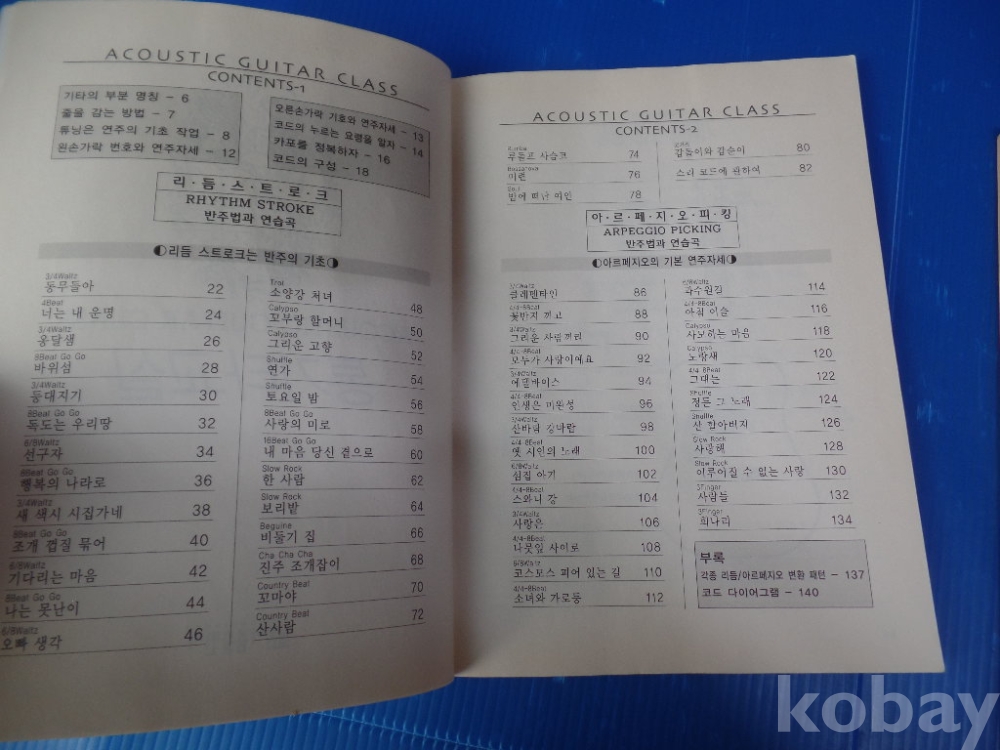 ACOUSTIC GUITAR CLASS
CONTENTS-1
기타의 부분 명칭 – 6
줄을 감는 방법 – 7
튜닝은 연주의 기초 작업 – 8
왼손가락 번호와 연주자세 – 12
오른손가락 기호와 연주자세 – 13
코드의 누르는 요령을 알자 – 14
카포를 정복하자 – 16
코드의 구성 – 18
리·듬·스·트·로·크
RHYTHM STROKE
반주법과 연습곡
리듬 스트로크는 반주의 기초
3/4Waltz
동무들아 22
4Beat
너는 내 운명 24
3/4Waltz
옹달샘 26
8Beat Go Go
바위섬 28
3/4Waltz
등대지기 30
8Beat Go Go
독도는 우리땅 32
6/8Waltz
선구자 34
8Beat Go Go
행복의 나라로 36
3/4Waltz
새 색시 시집가네 38
8Beat Go Go
조개 껍질 묶어 40
6/8Waltz
기다리는 마음 42
8Beat Go Go
나는 못난이 44
6/8Waltz
오빠 생각 46
Trot
소양강 처녀 48
Calypso
꼬부랑 할머니 50
Calypso
그리운 고향 52
Shuffle
연가 54
Shuffle
토요일 밤 56
8Beat Go Go
사랑의 미로 58
16Beat Go Go
내 마음 당신 곁으로 60
Slow Rock
한 사람 62
Slow Rock
보리밭 64
Beguine
비둘기 집 66
Cha Cha Cha
진주 조개잡이 68
Country Beat
꼬마야 70
Country Beat
산사람 72
ACOUSTIC GUITAR CLASS
CONTENTS-2
루돌프 사슴코 74
Bossanova
미련 76
Soul
밤에 떠난 여인 78
갑돌이와 갑순이 80
스리 코드에 관하여 82
아·르·페·지·오·피·킹
ARPEGGIO PICKING
반주법과 연습곡
아르페지오의 기본 연주자세
3/4Waltz
클레멘타인 86
4/4-8Beat
꽃반지 끼고 88
3/4Waltz
그리운 사람끼리 90
4/4-8Beat
모두가 사랑이에요 92
3/4Waltz
에델바이스 94
4/4-8Beat
인생은 미완성 96
3/4Waltz
산바람 강바람 98
4/4-8Beat
옛 시인의 노래 100
6/8Waltz
섬집 아기 102
4/4-8Beat
스와니 강 104
3/4Waltz
사랑은 106
4/4-8Beat
나뭇잎 사이로 108
6/8Waltz
코스모스 피어 있는 길 110
4/4-8Beat
소녀와 가로등 112
6/8Waltz
과수원길 114
4/4-8Beat
아침 이슬 116
Calypso
사모하는 마음 118
Calypso
노랑새 120
4/4 8Beat
그대는 122
Shuffle
젊은 그 노래 124
Shuffle
산 할아버지 126
Slow Rock
사랑해 128
Slow Rock
이루어질 수 없는 사랑 130
3Finger
사람들 132
3Finger
희나리 134
부록
각종 리듬/아르페지오 변환 패턴 – 137
코드 다이어그램 – 140
kobay